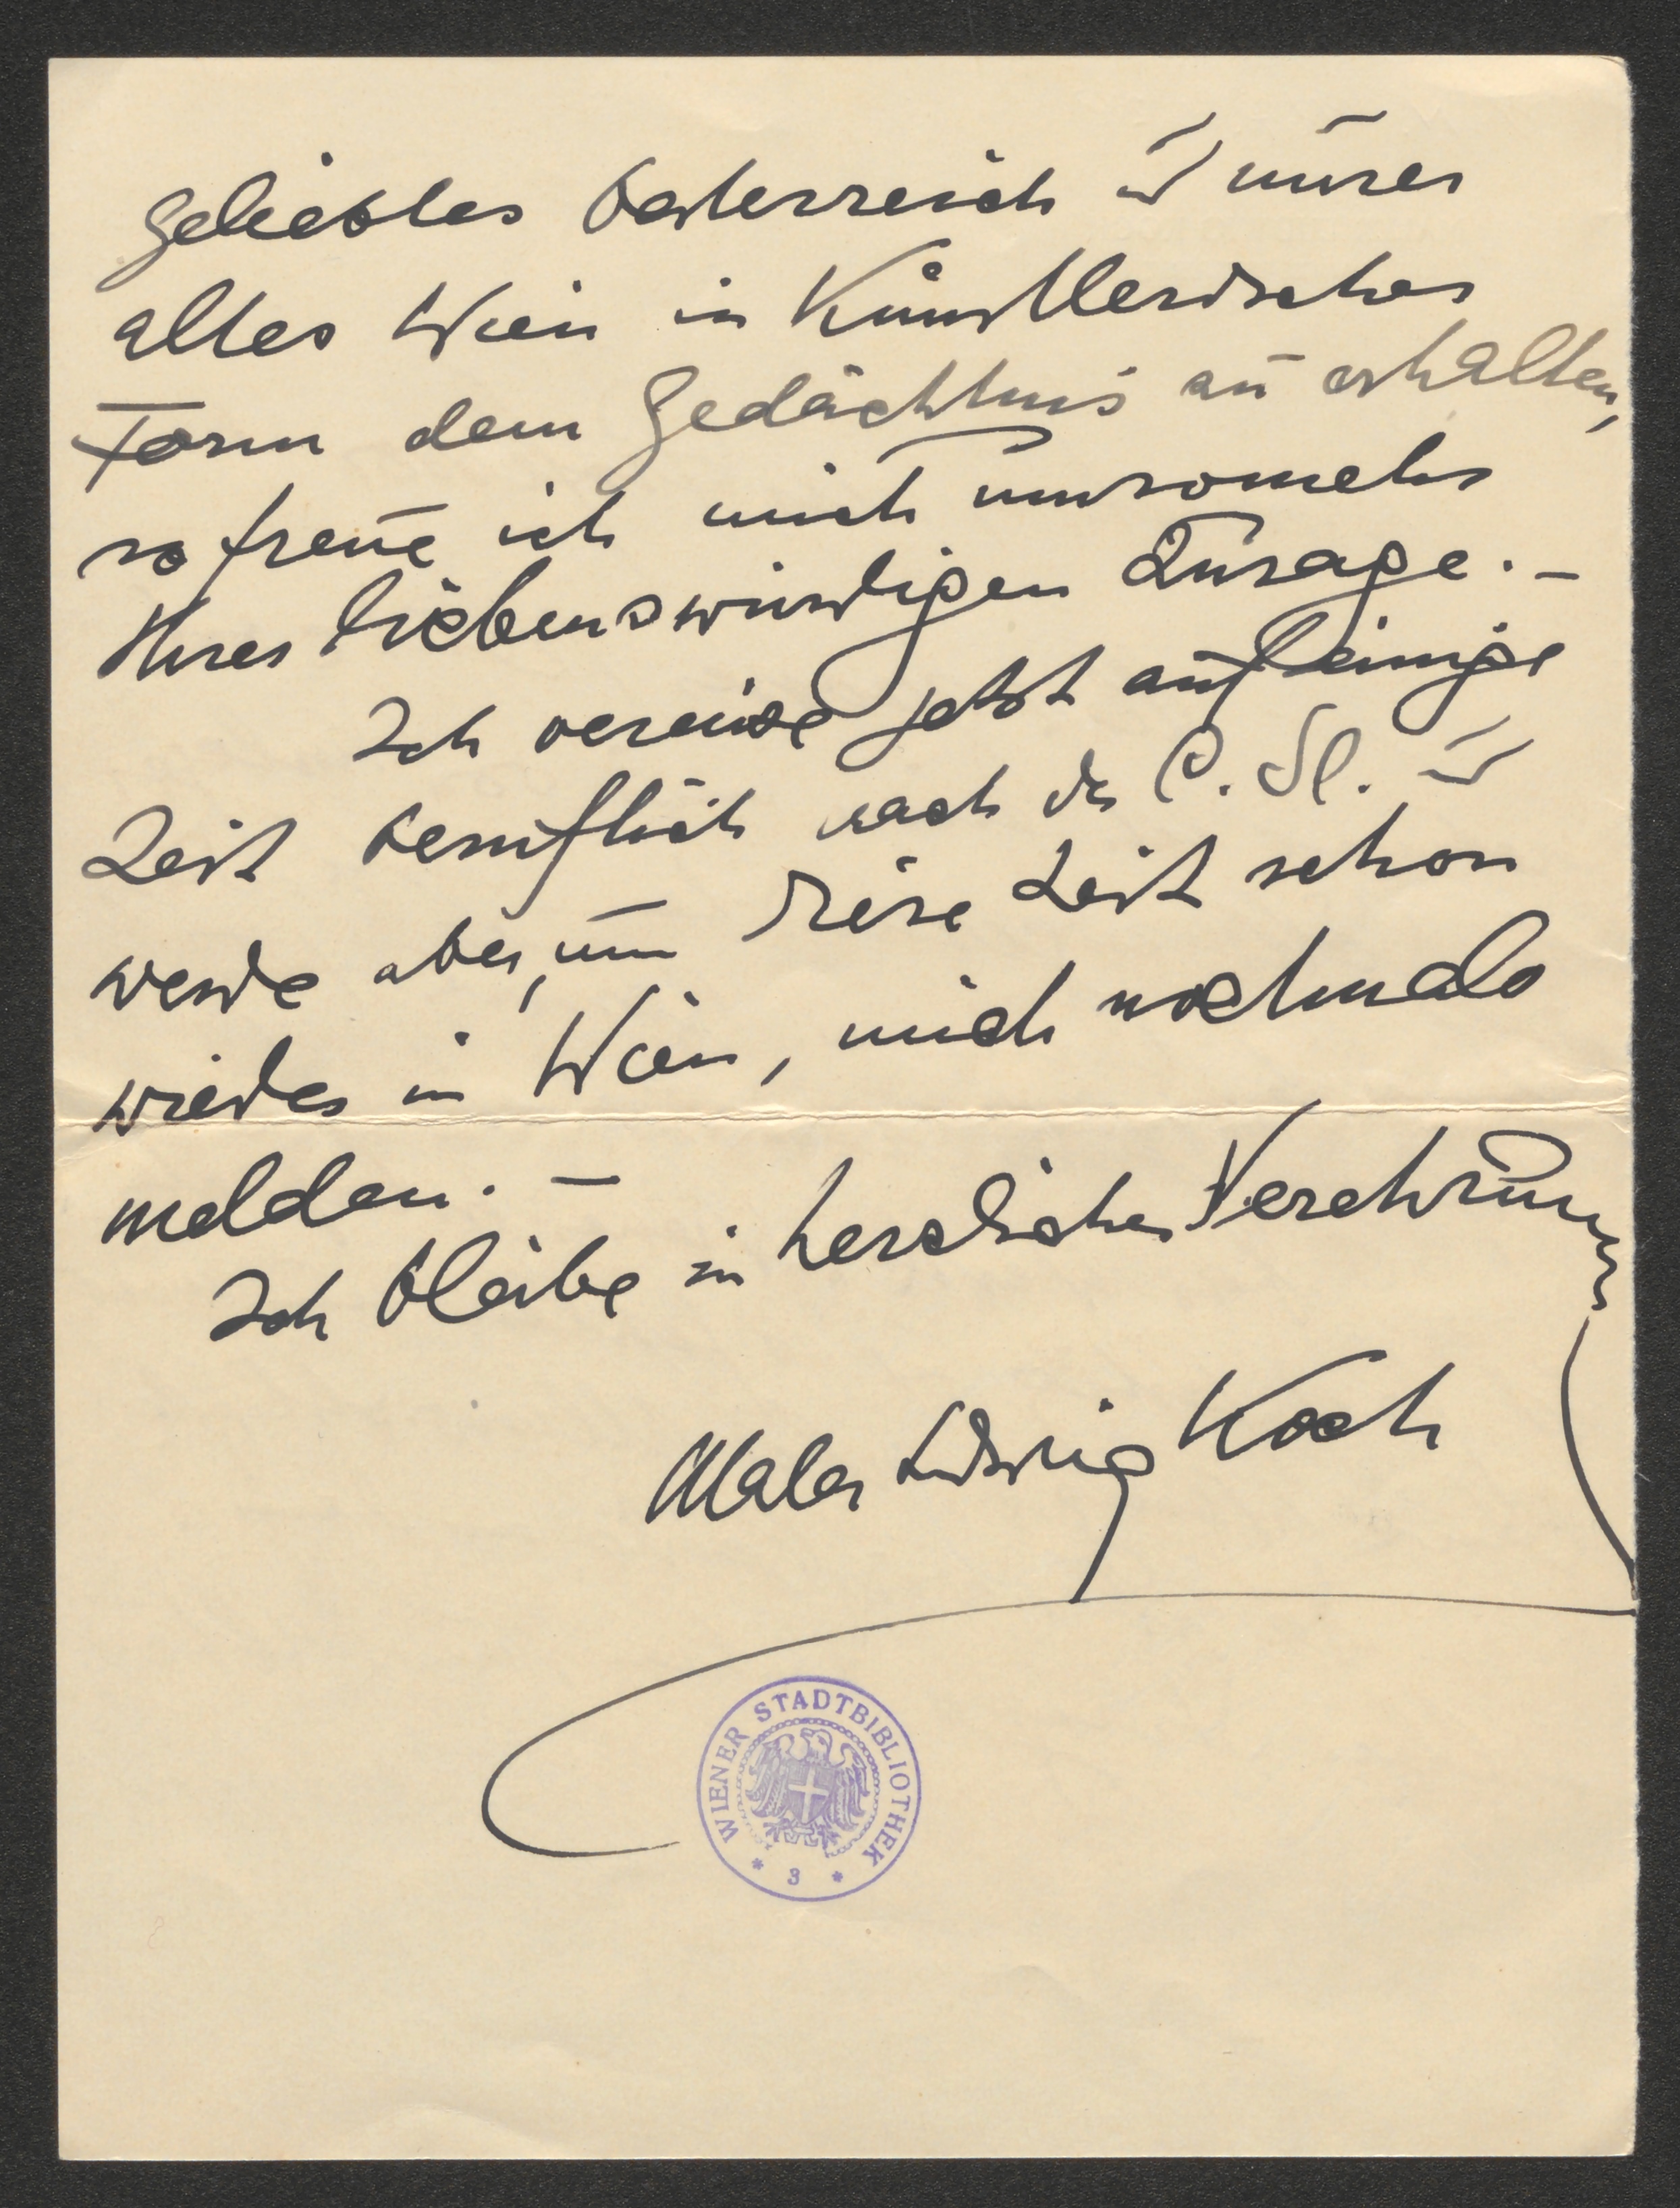 geliebtes Oesterreich u unser
altes Wien in Künstlerischer
Form dem Gedächtnis zu erhalten,
so freue ich mich umsomehr
Ihrer liebenswürdigen Zusage. –
Ich verreise jetzt auf einige
Zeit beruflich nach der C. Sl. u
werde aber, um diese Zeit schon
wieder in Wien, mich nochmals
melden. –
Ich bleibe in herzlicher Verehrung
Maler Ludwig Koch
WIENER STADTBIBLIOTHEK
* 3 *